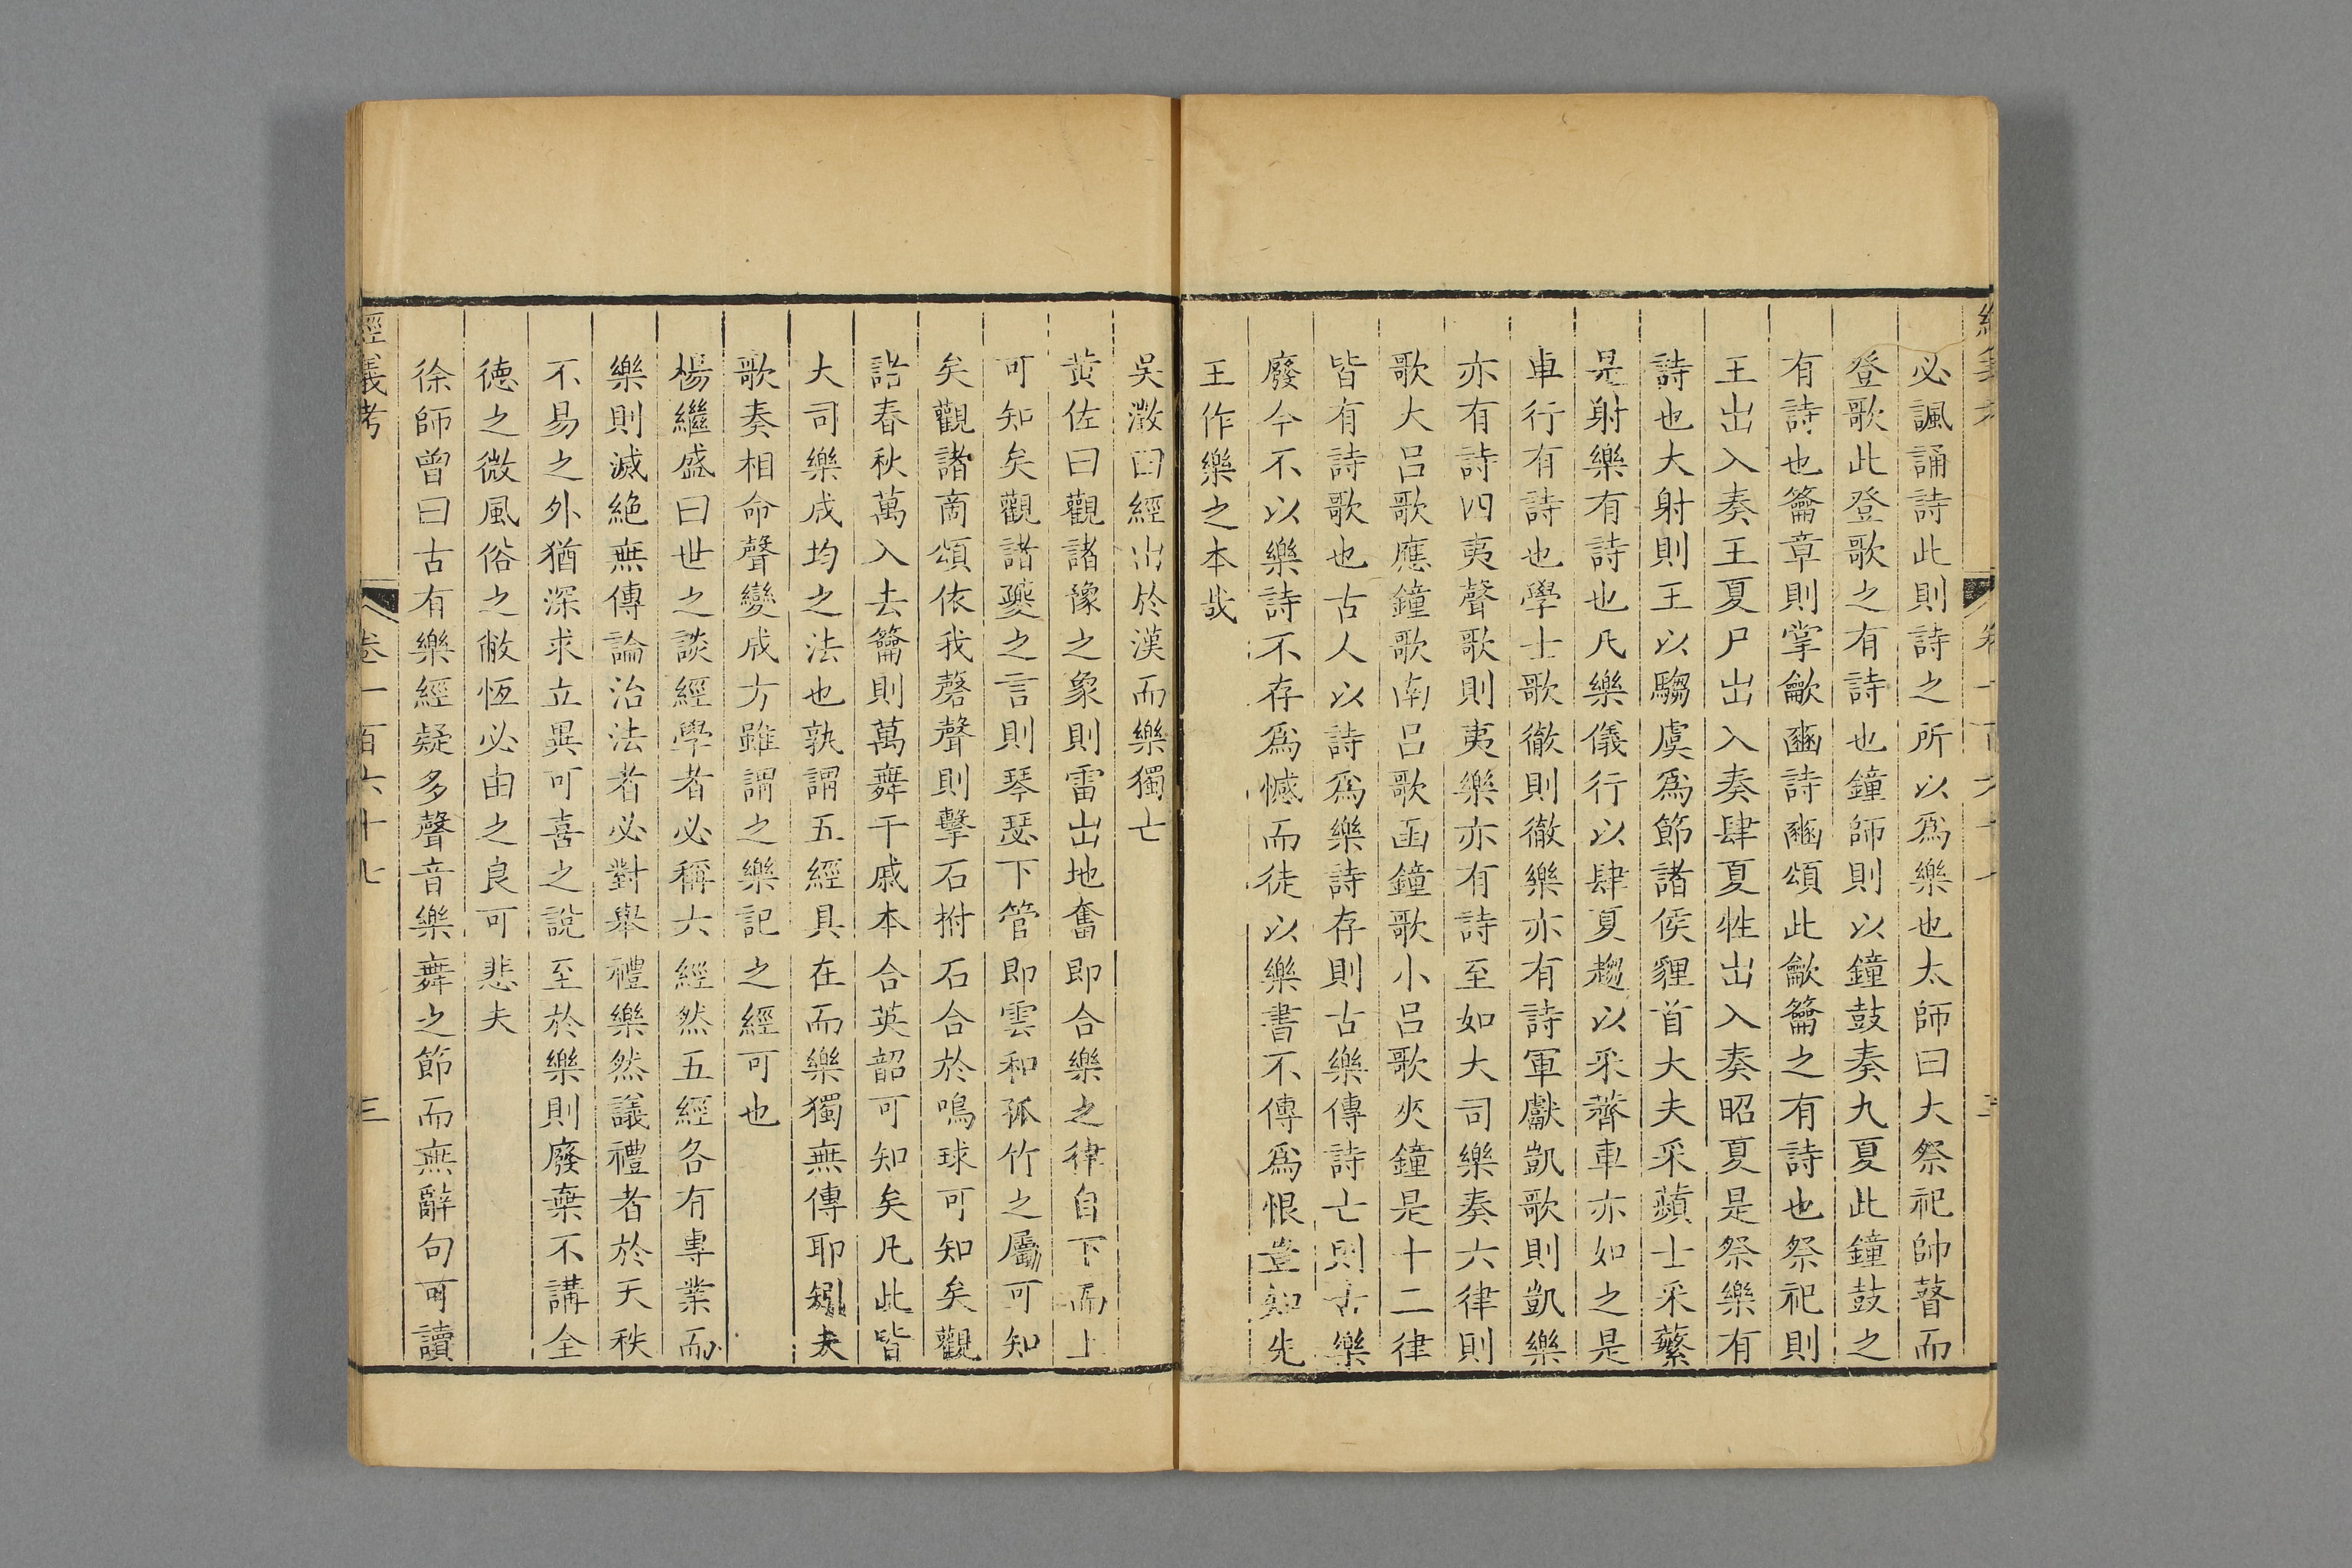 必諷誦詩此則詩之所以爲樂也太師曰大祭祀帥瞽而
登歌此登歌之有詩也鐘師則以鐘鼓奏九夏此鐘鼓之
有詩也籥章則掌龡豳詩豳頌此龡籥之有詩也祭祀則
王出入奏王夏尸出入奏肆夏牲出入奏昭夏是祭樂有
詩也大射則王以騶虞爲節諸侯貍首大夫采蘋士采蘩
是射樂有詩也凡樂儀行以肆夏趨以采薺車亦如之是
車行有詩也學士歌徹則徹樂亦有詩軍獻凱歌則凱樂
亦有詩四夷聲歌則夷樂亦有詩至如大司樂奏六律則
歌大呂歌應鐘歌南呂歌函鐘歌小呂歌夾鐘是十二律
皆有詩歌也古人以詩爲樂詩存則古樂傳詩亡則古樂
廢今不以樂詩不存爲憾而徒以樂書不傳爲恨豈知先
王作樂之本哉
吳澂曰經出於漢而樂獨亡
黃佐曰觀諸豫之象則雷出地奮即合樂之律自下而上
可知矣觀諸夔之言則琴瑟下管即雲和孤竹之屬可知
矣觀諸商頌依我磬聲則擊石拊石合於鳴球可知矣觀
諸春秋萬入去籥則萬舞干戚本合英韶可知矣凡此皆
大司樂成均之法也孰謂五經具在而樂獨無傳耶矧夫
歌奏相命聲變成方雖謂之樂記之經可也
楊繼盛曰世之談經學者必稱六經然五經各有專業而
樂則滅絕無傳論治法者必對舉禮樂然議禮者於天秩
不易之外猶深求立異可喜之說至於樂則廢棄不講全
德之微風俗之敝恆必由之良可悲夫
徐師曾曰古有樂經疑多聲音樂舞之節而無辭句可讀
經義考 卷一百六十七 三